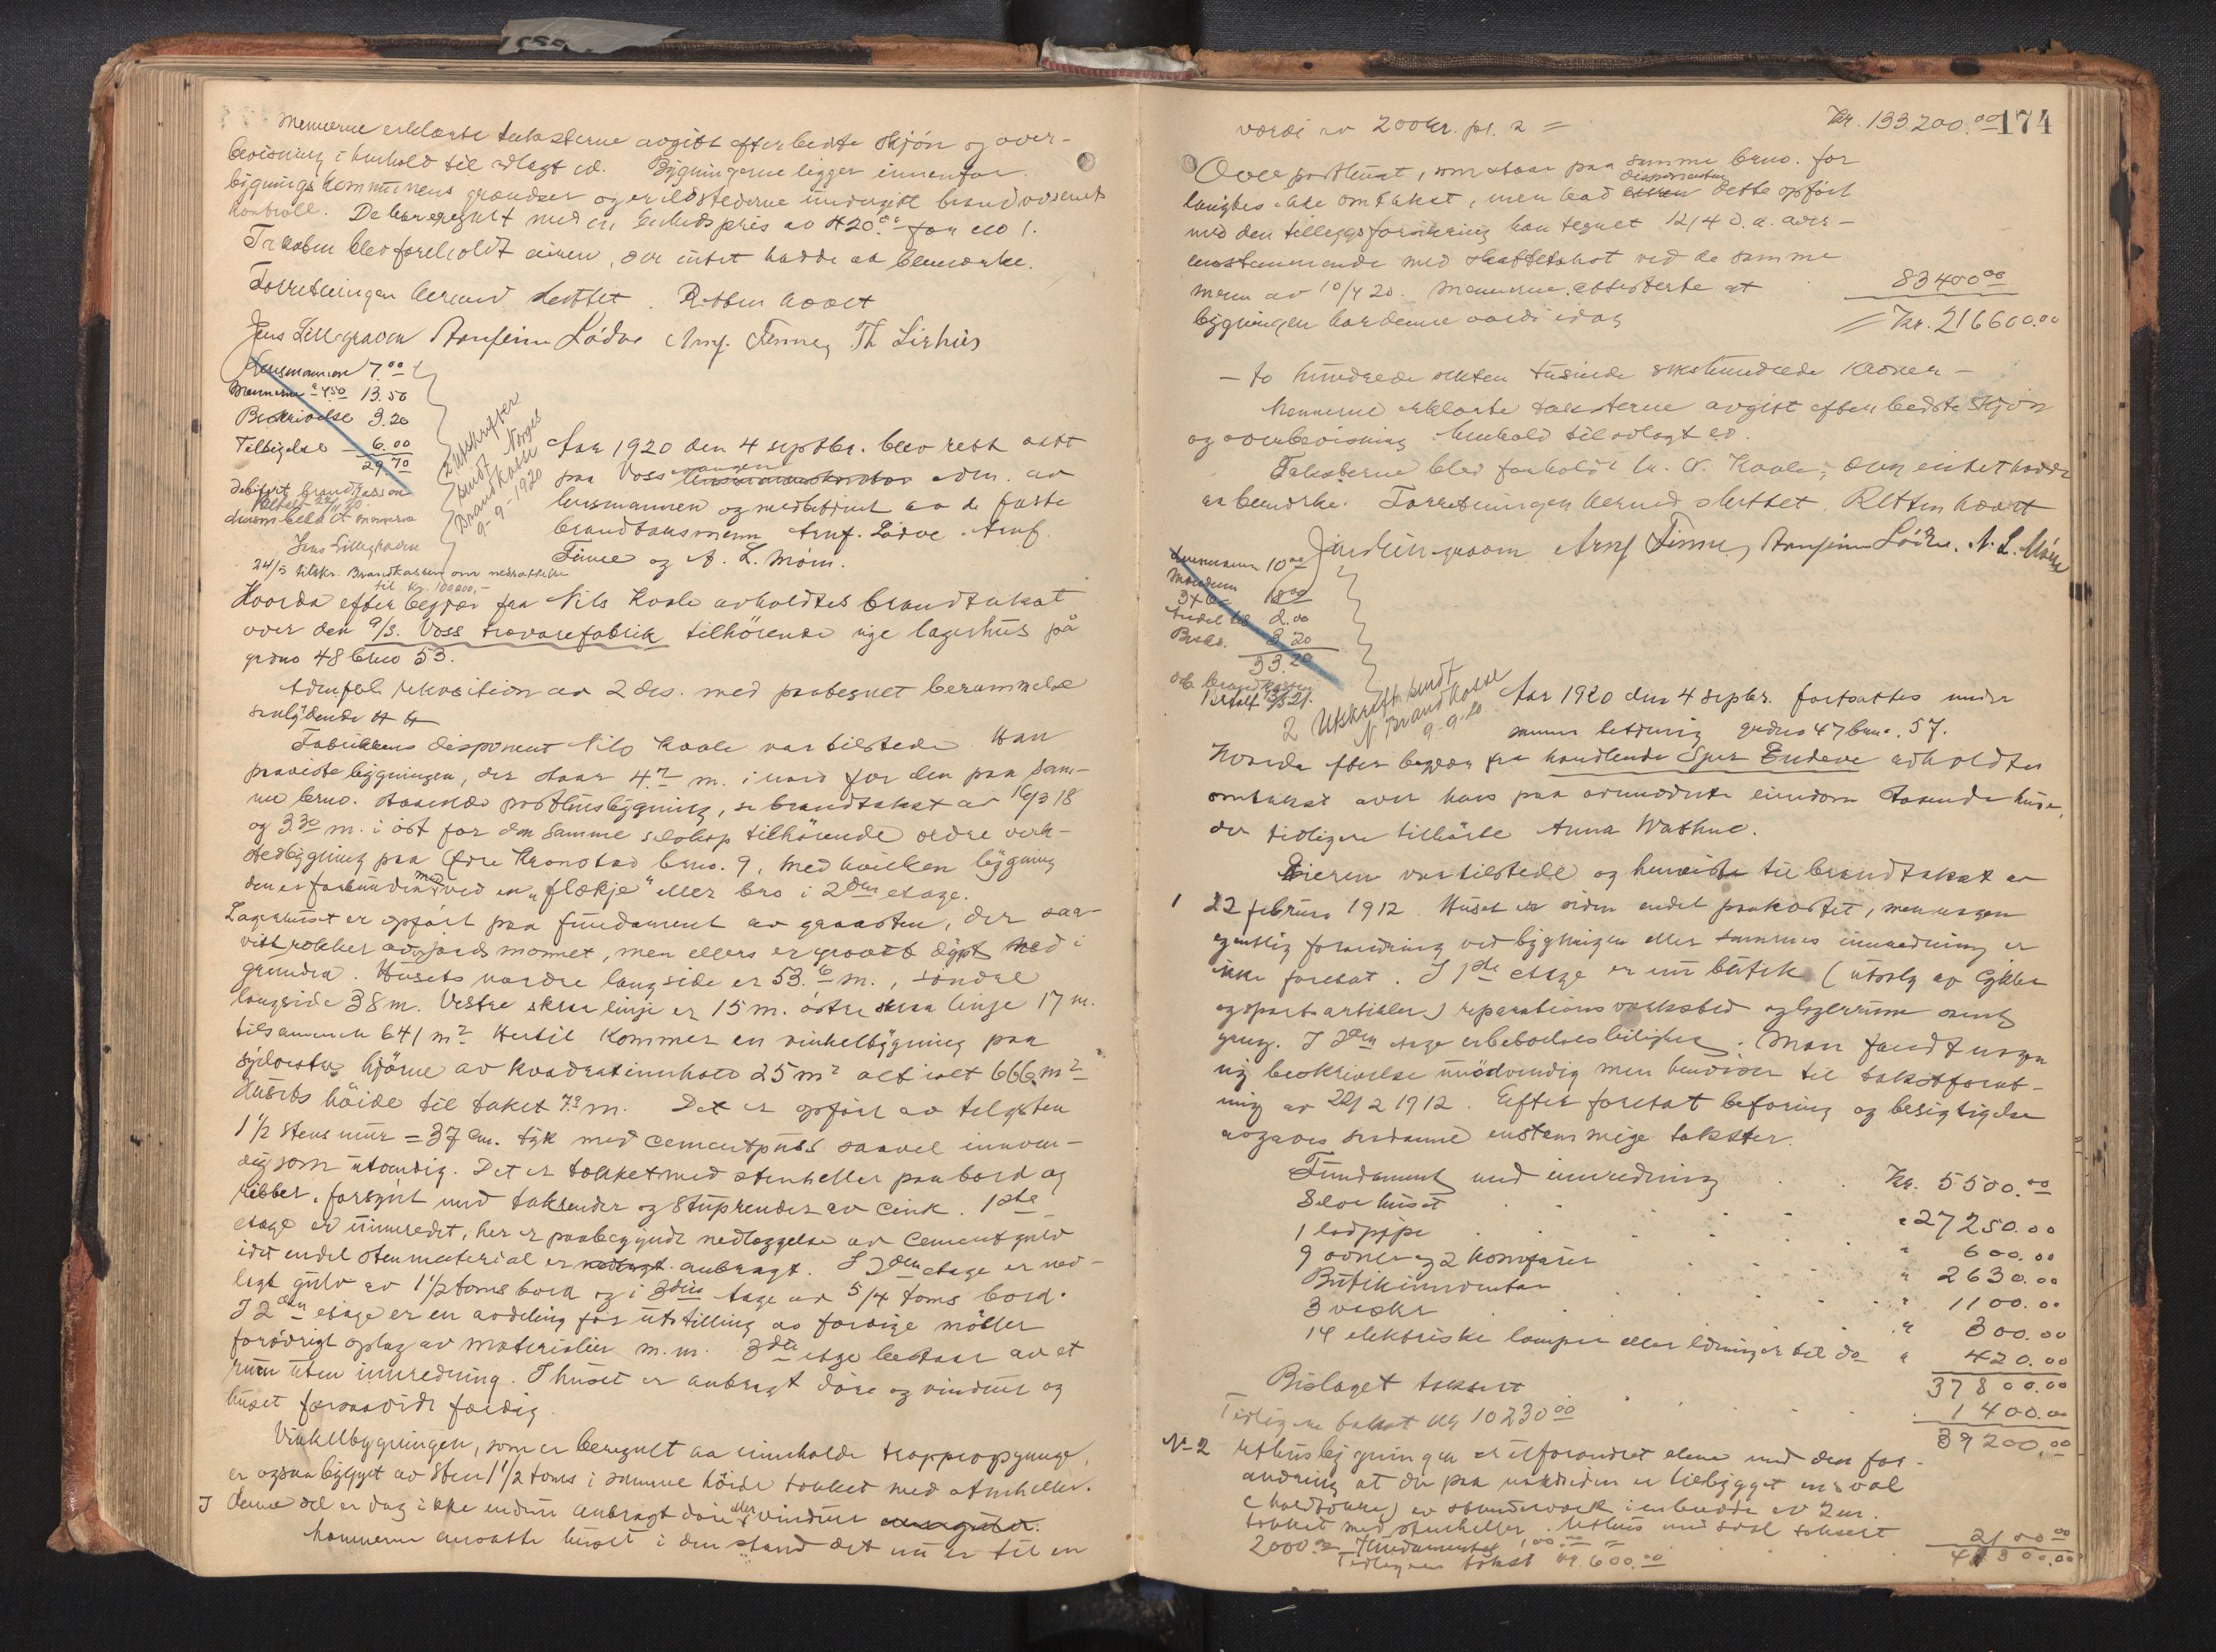 Mennerne erklærte taksterne avgit efter bedste skjön og over-
bevisning i henhold til avlagt ed. Bygningerne ligger innenfor
bygningskommunens grændser og er ildstederne undergitt brandvæsenets
kontroll. De har regnet med en enhedspris av 420.00 for no 1.
Taksten blev foreholdt eieren, der intet hadde at bemerke.
Forretningen hermed sluttet. Retten hævet
Jens Lillegraven Arnfinn Lödve Arnf. Finne, Th Lirhus
Lensmannen 7.00
Mennerne a 4.50 13.50
Beskrivelse 3.20
Tilsigelse 6.00
29.70
debitert brandkassen
Jens Lillegraven
24/3 tilskr. Brandkassen om nedsættelse
til kr. 100000,-
2 utskrifter
sendt Norges
Brandkasse
9-9-1920
Aar 1920 den 4 septbr. blev rett satt
paa Voss Lensmannskontor adm. av
lensmannen og medbetjent av de faste
brandtaksmenn Arnf. Lödve, Arnf.
Finne og A. L. Mörn.
Hvorda efter begjær fra Nils Koale avholdtes brandtakst
over den A/S. Voss trævarefabrik tilhörende nye lagerhus på
grdno 48 brno 53.
rekvisition av 2 ds. med paategnet berammelse
saalydende
Fabrikkens disponent Nils Koale var tilstede. Han
paaviste bygningen, der staar 4.7 m. i nord for den paa sam-
me brno. staaende portbusbygning, se brandtakst av 16/3 18
og 3.30 m. i öst for den samme selskap tilhörende ældre verk-
stedbygning paa Øvre Kronstad brno. 9, med hvilken bygning
den er forbunden med ved en "flækje" eller bro i 2den etage.
Lagerhuset er opfört paa fundament av graasten, der saa-
vidt rækker over jords monnet, men ellers er gravet dypt ned i
grunden. Husets nordre langside er 53.6 m., söndre
langside 38 m. Vestre skraa linje er 15 m. östre skraa linje 17 m.
tilsammen 641 m2 Hertil kommer en vinkelbygning paa
sydvestre hjörne av kvadratinnhold 25 m2 alt ialt 666 m2
Husets höide til taket 7.2 m. Det er opfört av telgsten
1 1/2 stens mur = 37 cm. tyk med cementpuss saavel innven-
dig som utvendig. Det er tækket med stenheller paa bord og
ribber, forsynt med takrender og stuprender av cink. 1ste
etage er uinnredet, her er paabegyndt nedlæggelse av cementgulv
idet endel stenmaterial er nedlagt anbragt. I 2den etage er ned-
lagt gulv av 1 1/2 toms bord og i 3die etage av 5/4 toms bord.
I 2den etage er en avdeling for utstilling av færdige möbler
forövrigt oplag av materialier m.m. 3die etage bestaar av et
rum uten innredning. I huset er anbragt döre og vinduer og
huset forsaavidt færdig.
Vinkelbygningen, som er beregnet aa inneholde trappeopgange,
er ogsaa bygget av sten 1 1/2 toms i samme höide tækket med stenheller.
I denne del er dog ikke endnu anbragt döre eller vinduer
Mennerne ansatte huset i den stand det nu er til en
174
værdi av 200 kr. pr. m2 = Kr. 133200.00
Over portbuset, som staar paa samme brno. for
langtes ikke omtakst, men bad disponenten dette opfört
med den tilleggsforsikring han tegnet 12/4 d.a. over-
ensstemmende med skattetakst ved de samme
menn av 10/4 20. Mennerne attesterte at
bygningen har denne værdi idag 83400.00
= Kr. 216600.00
- to hundrede seksten tusinde sekshundrede kroner -
Mennerne erklærte taksterne avgit efter bedste skjön
og overbevisning i henhold til avlagt ed.
Taksterne blev foreholdt hr. N. Koale, der intet hadde
at bemerke. Forretningen hermed sluttet. Retten hævet
Jens Lillegraven Arnf Finne, Arnfinn Lödve, A. L. Mörn
Lensmannen 10.00
Mændene
3 x 6 18.00
2.00
Beskr. 3.20
33.20
2 Utskrift. sendt
N Brandkasse
9-9-20
Aar 1920 den 4 septbr. fortsattes under
samme betjening grdno 47 brno. 57.
Hvorda efter begjær fra handlende Sjur Endeve avholdtes
omtakst over hans paa ovennævnte eiendom staaende huse,
der tidligere tilhörte Anna Wathne.
Eieren var tilstede og henviste til brandtakst av
1 22 februar 1912. Huset er siden endel paakostet, men nogen
egentlig forandring ved bygningen eller sammes innredning er
ikke foretat. I 1ste etage er nu butik (utsalg av cykler
og sportsartikler) reparationsverksted og lagerrum samt
gang. I 2den etage er beboelsesleilighet. Man fandt nogen
ny beskrivelse unödvendig men henviser til takstforret-
ning av 22/2 1912. Efter foretat befaring og besigtigelse
avgaves saadanne enstemmige takster.
Fundament med innredning Kr. 5500.00
Selve huset " 27250.00
1 lodpipe " 600.00
9 ovner og 2 komfurer " 2630.00
Butikinventar " 1100.00
3 vasker " 300.00
14 elektriske lamper eller ledninger til do " 420.00
37800.00
Bislaget taksert 1400.00
Tidligere takst kr 10230.00 39200.00
No 2 Uthusbygningen er uforandret alene med den for-
andring at der paa nordsiden er tilbygget en sval
av stenderverk i en bredde av 2 m.
tækket med stenheller. Uthus med sval taksert
2000.00 Fundamentet 100.00 = 2100.00
Tidligere takst kr. 600.00 41300.00